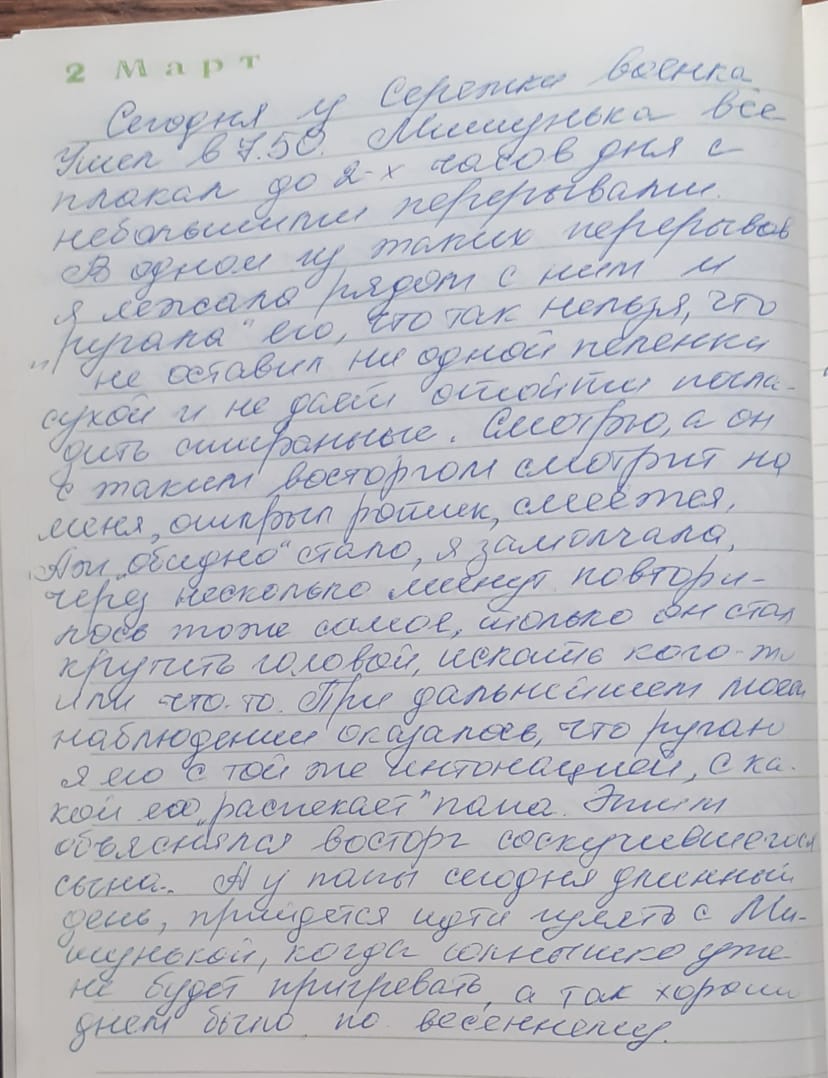 2 Март
Сегодня у Сережки военка
Ушел в 7.50. Мишунька все
плакал до 2-х часов дня с
небольшими перерывами.
В одном из таких перерывов
я лежала рядом с ним и
„ругала" его, что так нельзя, что
не оставил ни одной пеленки
сухой и не дает отойти погла-
дить стиранные. Смотрю, а он
с таким восторгом смотрит на
меня, открыл ротик, смеется,
Аж „обидно" стало, я замолчала,
через несколько минут повтори-
лось тоже самое, только он стал
крутить головой, искать кого-то
или что-то. При дальнейшем моем
наблюдении оказалось, что ругаю
я его с той же интонацией, с ка-
кой его „распекает" папа. Этим
объяснялся восторг соскучившегося
сына.. А у папы сегодня длинный
день, придется идти гулять с Ми-
шунькой, когда солнышко уже
не будет пригревать, а так хорошо
днем было, по весеннему.